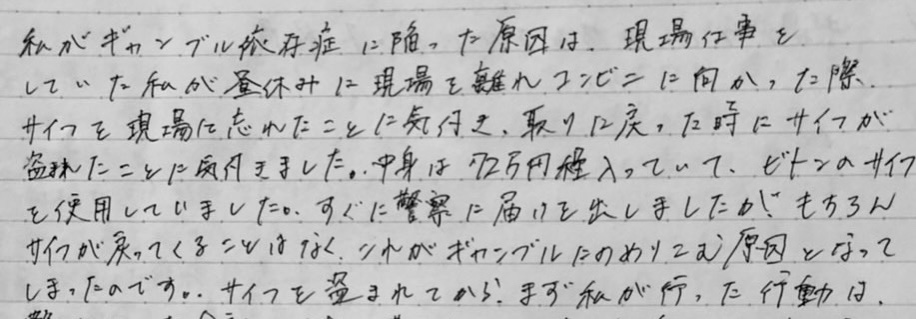 私がギャンブル依存症に陥った原因は、現場仕事を
していた私が昼休みに現場を離れコンビニに向かった際、
サイフを現場に忘れたことに気付き、取りに戻った時にサイフが
盗まれたことに気付きました。中身は72万円程入っていて、ビトンのサイフ
を使用していました。すぐに警察に届けを出しましたが、もちろん
サイフが戻ってくることはなく、これがギャンブルにのめりこむ原因となって
しまったのです。サイフを盗まれてから、まず私が行った行動は、